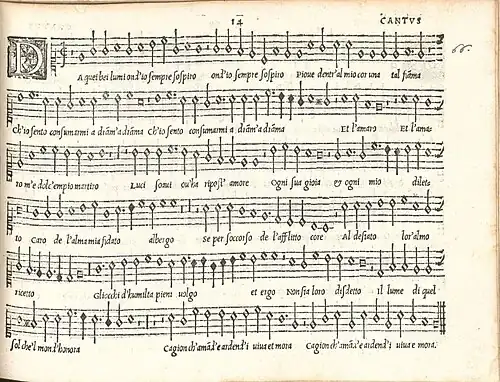 14 CANTVS
66.
DA quei bei lumi ond'io sempre sospiro ond'io sempre sospiro Pioue dentr'al mio cor una tal fiãma
Ch'io sento consumarmi a drãm'a drãma Ch'io sento consumarmi a drãm'a drãma Et l'amaro Et l'ama-
ro m'è dolc'empio martiro Luci soaui ou'ha ripost' amore Ogni sua gioia & ogni mio dilet-
to Caro de l'alma mia fidato albergo Se per soccorso de l'afflitto core Al desiato lor'almo
ricetto Gliocchi d'humiltà pieni uolgo et ergo Non sia loro disdetto Il lume di quel
sol che'l mond'honora Cagion ch'amãd'e ardend'i uiua et mora Cagion ch'amãd'e ardend'i uiua e mora.